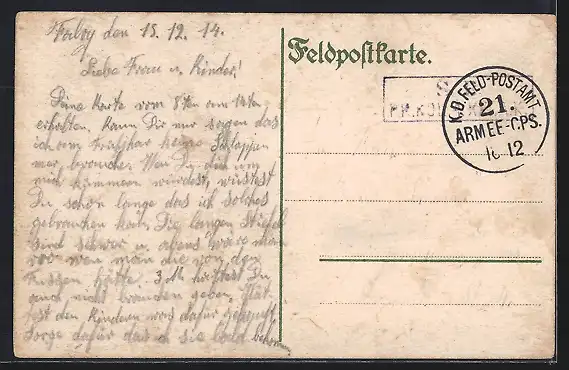 Faby den 15.12.14.
Liebe Frau u. Kinder!
Deine Karte vom 8ten am 14ten
erhalten. Kann Dir nur sagen das
ich am keine Schlappen
mer brauche. Wen Du dich um
mich kümmern würdest, wüstest
Du schon lange das ich solches
gebrauchen kan. Die langen Stiefel
sind schwer u. abens wäre man
vro wen man die von den
Füssen hätte. 3 M hättest Du
auch nicht brauchen geben,
test den Kindern was dafür gekauft.
Sorge dafür das ich sie bald bekomm
Feldpostkarte.
K.D. FELD-POSTAMT
21.
ARMEE-CPS.
16 12